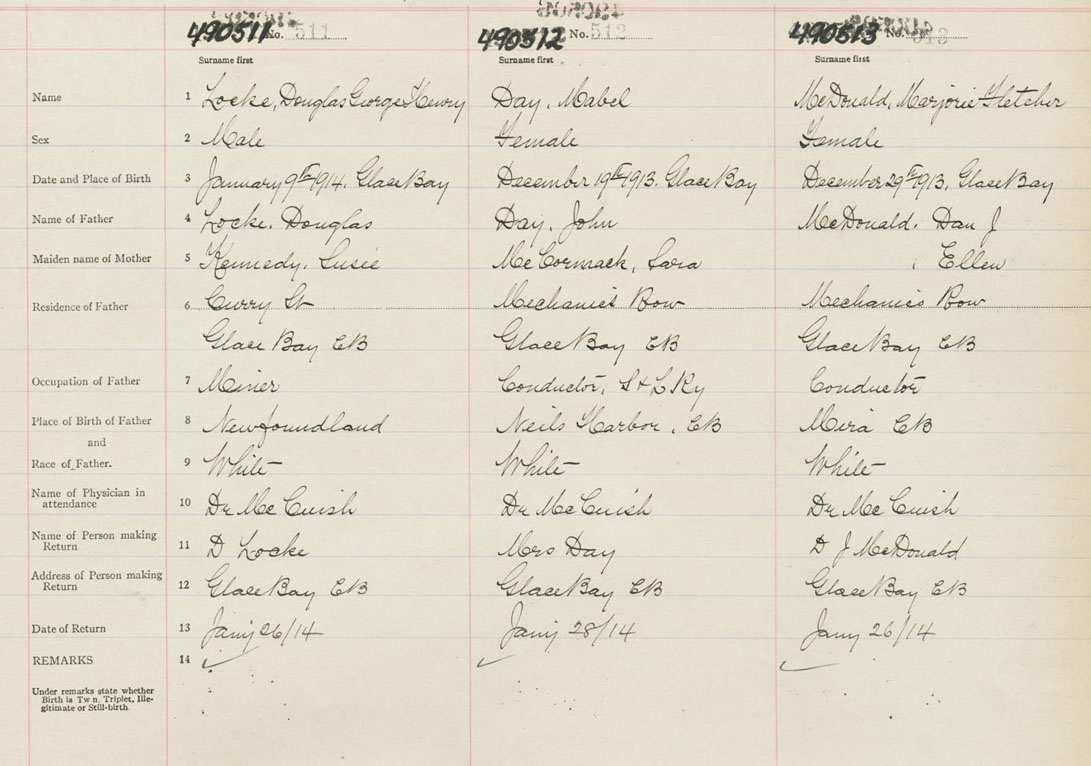 490511 No. 511 490512 No. 512 490513 No. 513
Surname first Surname first Surname first
Name 1 Locke, Douglas George Henry Day, Mabel McDonald, Marjorie Fletcher
Sex 2 Male Female Female
Date and Place of Birth 3 January 9th 1914. Glace Bay December 19th 1913. Glace Bay December 29th 1913, Glace Bay
Name of Father 4 Locke, Douglas Day, John McDonald, Dan J
Maiden name of Mother 5 Kennedy, Susie McCormack, Sara , Ellen
Residence of Father 6 Curry St Mechanics Row Mechanics Row
Glace Bay CB Glace Bay CB Glace Bay CB
Occupation of Father 7 Miner Conductor, S & L Ry Conductor
Place of Birth of Father 8 Newfoundland Neils Harbor, CB Mira CB
and
Race of Father. 9 White White White
Name of Physician in
attendance 10 Dr McCuish Dr McCuish Dr McCuish
Name of Person making
Return 11 D Locke Mrs Day D J McDonald
Address of Person making
Return 12 Glace Bay CB Glace Bay CB Glace Bay CB
Date of Return 13 Jany 26/14 Jany 28/14 Jany 26/14
REMARKS 14
Under remarks state whether
Birth is Twn, Triplet, Ille-
gitimate or Still-birth